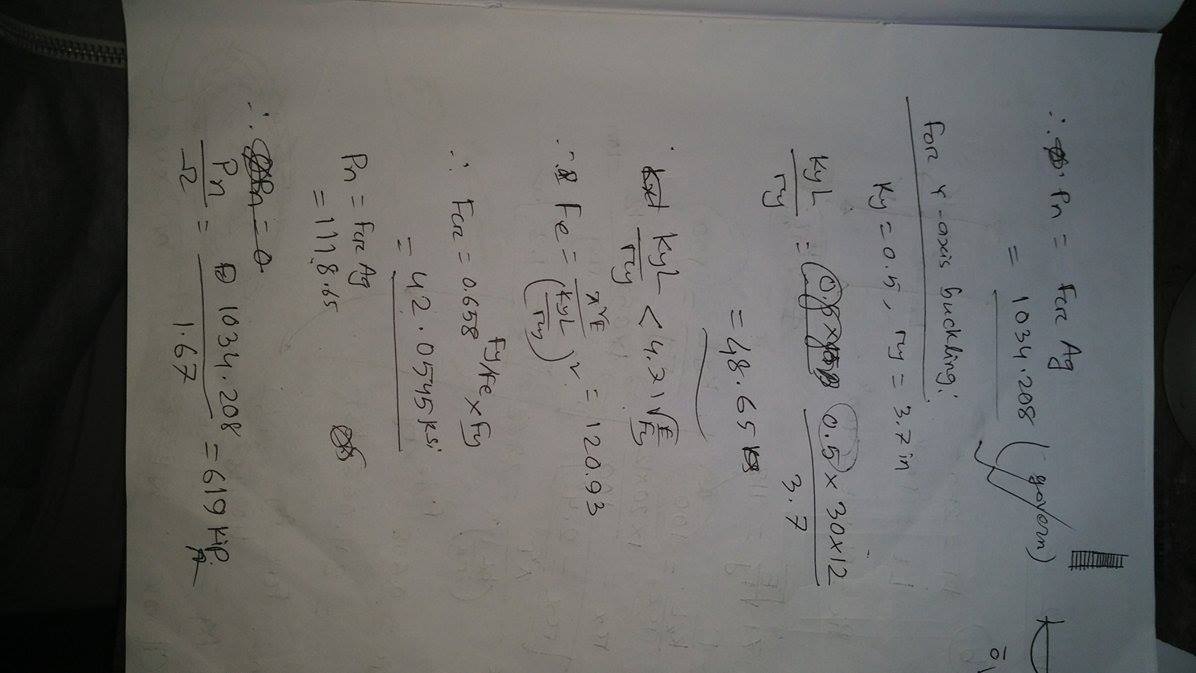 ∴ Pn = Fcr Ag
= 1034.208 (govern)
For Y-axis buckling:
Ky = 0.5, ry = 3.7 in
KyL/ry = 0.5 × 30×12 / 3.7
= 48.65
KyL/ry < 4.71 √(E/Fy)
∴ Fe = π²E / (KyL/ry)² = 120.93
∴ Fcr = 0.658^(Fy/Fe) × Fy
= 42.0545 ksi
Pn = Fcr Ag
= 1118.65
∴ Pn/Ω = 1034.208 / 1.67 = 619 kip